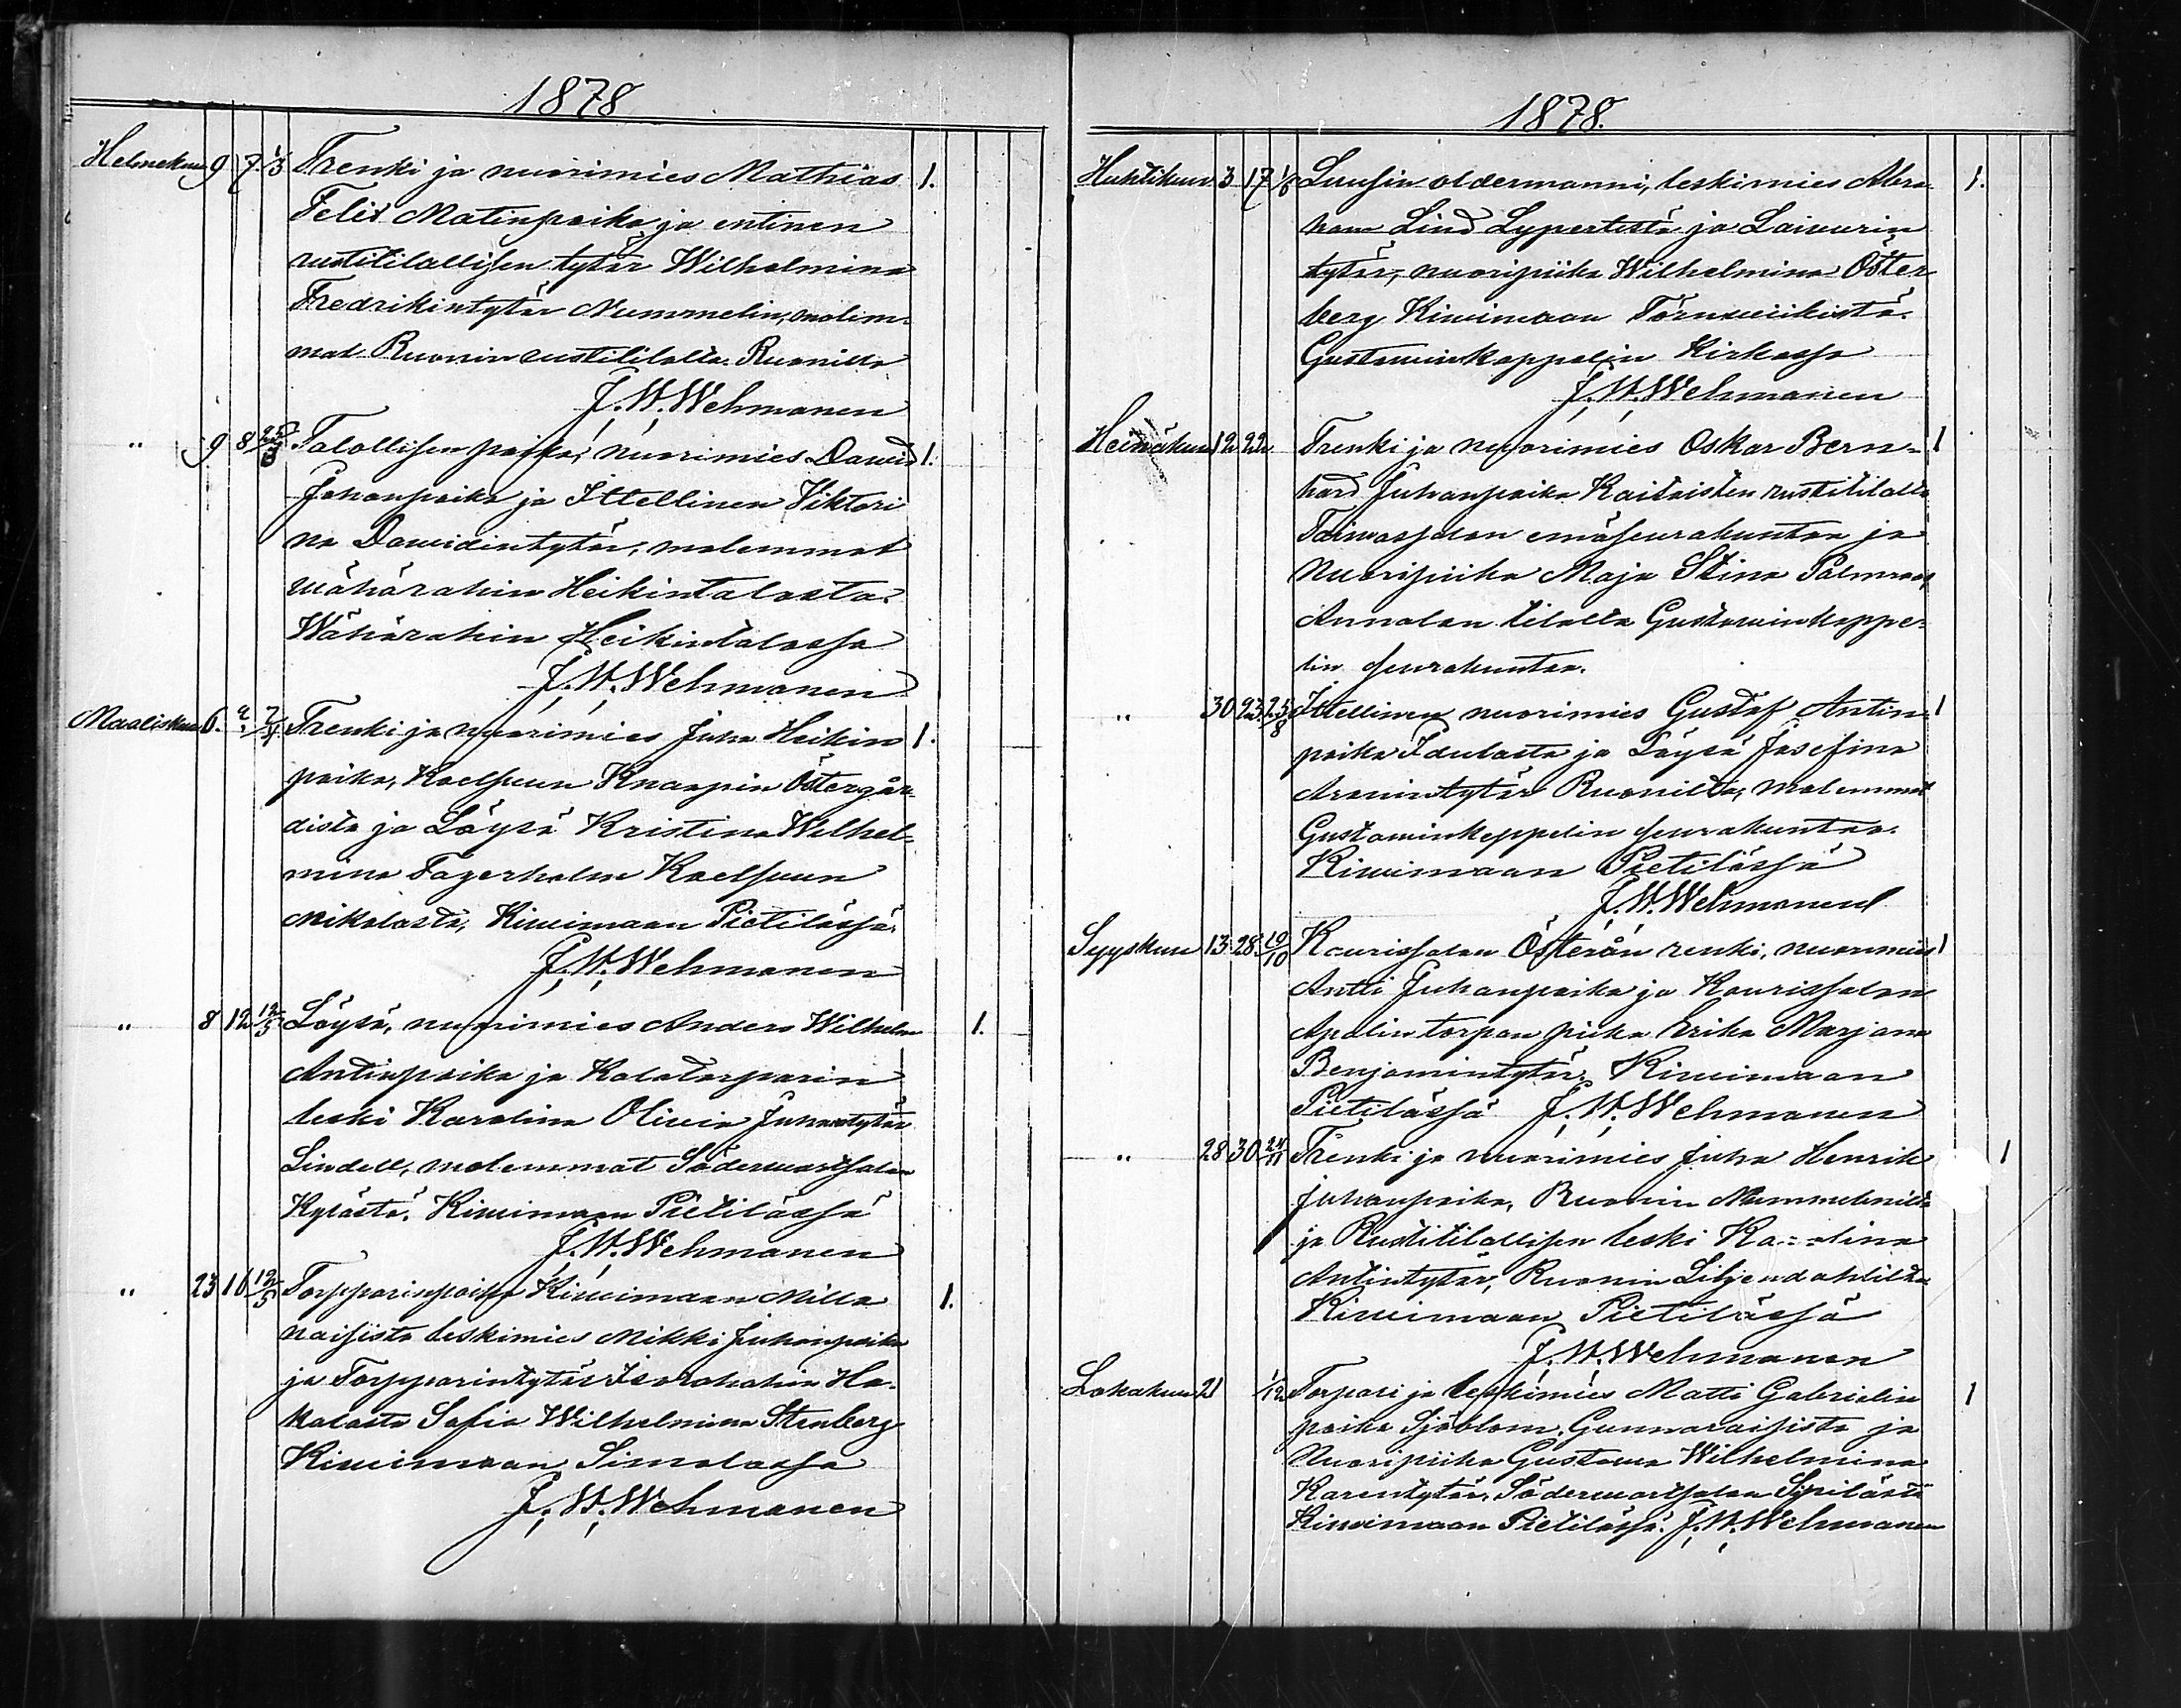 1878
Helmekuu 9 7. 1/3 Trenki ja nuorimies Mathias 1.
Felix Matinpoika ja entinen
rustitilallisen tytär Wilhelmina
Fredrikintytär Nummelin, molem-
mat Ruonin rustitilalta. Ruonilla
J. W. Wehmanen
" 9 8 Talollisen poika, nuorimies Dawid 1.
Johanpoika ja Ittellinen Viktori
na Dawidintytär, molemmat
Wähärahin Heikintalosta.
Wähärahin Heikintalossa
J. W. Wehmanen
Maaliskuu 6. Trenki ja nuorimies Juha Heikin 1.
poika, Kaelpuun Knaapin Östergår-
dista ja Löysä Kristina Wilhel-
mina Fagerholm Kaelpuun
Mikolasta, Kiwimaan Pietilässä.
J. W. Wehmanen
" 8 12 12/5 Löysä, nuorimies Anders Wilhelm 1.
Antinpoika ja Kalatorparin
leski Karolina Oliwia Juhantytär
Lindell, molemmat Söderwartsalan
Kylästä. Kiwimaan Pietilässä
J. W. Wehmanen
" 23 16 12/5 Torpparinpoika Kiwimaan Milla 1.
naisista leskimies Mikki Juhanpoika
ja Torpparintytär Isorahahin Ha-
kalasta Sofia Wilhelmina Stenberg
Kiwimaan Simolassa
J. W. Wehmanen
1878.
Huhtikuu 3 17 1/6 Luusin oldermanni, leskimies Abra- 1.
ham Lind Lypertistä ja Laiwurin
tytär, nuoripiika Wilhelmina Öster
berg Kiwimaan Törnwiikistä.
Gustawinkappelin Kirkossa
J. W. Wehmanen
Heinäkuu 12 22 Trenki ja nuorimies Oskar Bern- 1
hard Juhanpoika Kaitaisten rustitilalta
Taiwassalon emäseurakuntaa ja
Nuoripiika Maja Stina Palmroos
Annalan tilalta Gustawinkappe-
lin seurakuntaa.
" 30 23. 25/8 Ittellinen nuorimies Gustaf Antin- 1
poika Idulasta ja Löysä Josefina
Aronintytär Ruonilta, molemmat
Gustawinkappelin seurakuntaa.
Kiwimaan Pietilässä
J. W. Wehmanen
Syyskuu 13 28. 19/10 Kaurissalan Österån renki, nuorimies 1
Antti Juhanpoika ja Kaurissalan
Apalin torpan piika Erika Marjana
Benjamintytär. Kiwimaan
Pietilässä J. W. Wehmanen
" 28 30 24/11 Trenki ja nuorimies Juha Henrik 1
Juhanpoika, Ruonin Nummelinilta
ja Rustitilallisen leski Karolina
Antintytär, Ruonin Liljendahlilta
Kiwimaan Pietilässä
J. W. Wehmanen
Lokakuu 21 1/12 Torpari ja leskimies Matti Gabrielin 1
poika Sjöblom, Gunnaraisista ja
Nuoripiika Gustawa Wilhelmina
Karentytär, Söderwartsalan Sipilästä
Kiwimaan Pietilässä. J. W. Wehmanen